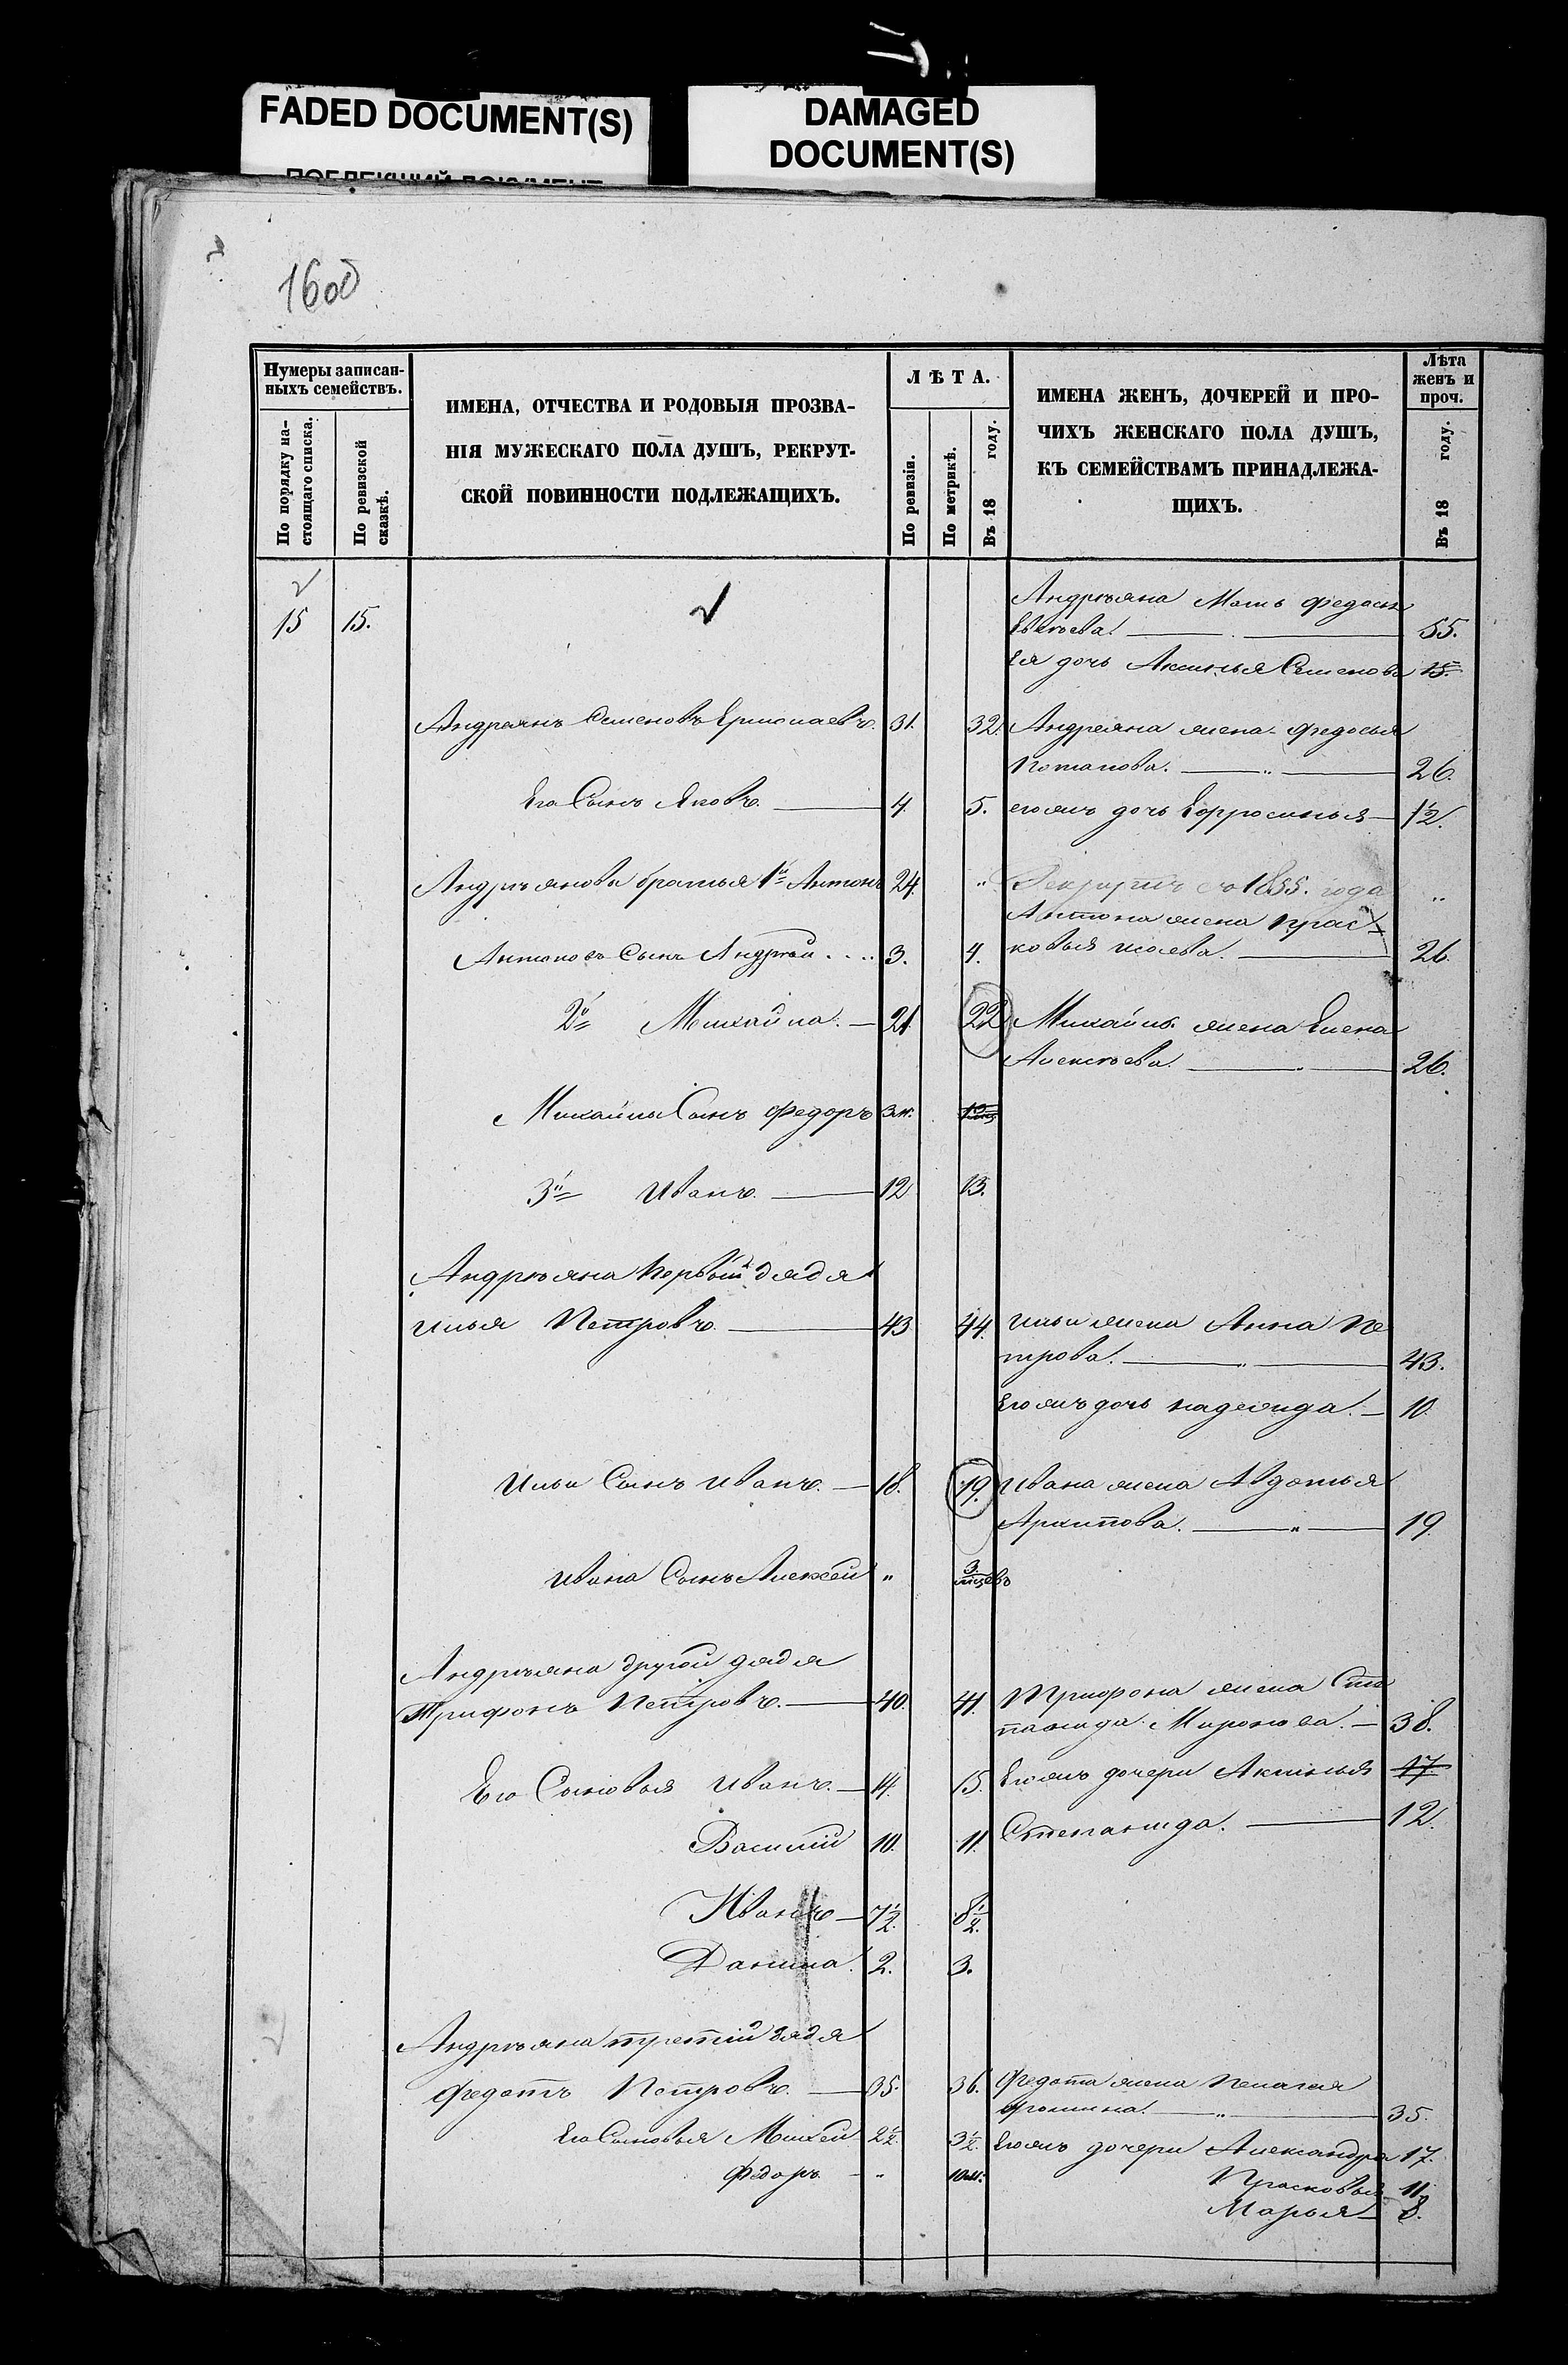 FADED DOCUMENT(S)
DAMAGED
DOCUMENT(S)
1600
Нумеры записан-
ныхъ семействъ.
По порядку на-
стоящаго списка.
По ревизской
сказкѣ.
ИМЕНА, ОТЧЕСТВА И РОДОВЫЯ ПРОЗВА-
НІЯ МУЖЕСКАГО ПОЛА ДУШЪ, РЕКРУТ-
СКОЙ ПОВИННОСТИ ПОДЛЕЖАЩИХЪ.
ЛѢТА.
По ревизіи.
По метрикѣ.
Въ 18 году.
ИМЕНА ЖЕНЪ, ДОЧЕРЕЙ И ПРО-
ЧИХЪ ЖЕНСКАГО ПОЛА ДУШЪ,
КЪ СЕМЕЙСТВАМЪ ПРИНАДЛЕЖА-
ЩИХЪ.
Лѣта
женъ и
проч.
Въ 18 году.
Андрѣяна Мать Федось
15 15. 55.
Ея дочь Аксинья Семенова 15.
Андреянъ Семеновъ 31. 32. Андреяна жена Федосья
Потапова. 26.
Его Сынъ Яковъ. 4. 5. егожъ дочь Ефросинья 1/2.
Андрѣяновы братья 1й Антонъ 24. " 1855. года "
Антона жена Прас-
Антоновъ Сынъ Андрей . . . . 3. 4. ковья 26.
2й Михайла. 21. 22 Михайлы жена Елена
Алексѣева. 26.
Михайлы Сынъ Федоръ 3м.
3й Иванъ. 12 13.
Андрѣяна первый дядя
Илья Петровъ. 43 44. Ильи жена Анна Пе
трова. 43.
Егожъ дочь Надежда. 10.
Ильи Сынъ Иванъ. 18. 19. Ивана жена Авдотья
Архипова. 19.
Ивана Сынъ Алексей " 3 мцевъ
Андрѣяна другой дядя
Трифонъ Петровъ. 40. 41. Трифона жена Сте
панида Миронова. 38.
Его Сыновья Иванъ. 14. 15. Егожъ дочери Аксинья 17
Степанида. 12.
Василий 10. 11.
Иванъ 7 1/2. 8 1/2.
Данила. 2. 3.
Андрѣяна третий дядя
Федотъ Петровъ. 35. 36. Федота жена Пелагея
Фомина. 35.
Его Сыновья Михей 2 1/2. 3 1/2. Егожъ дочери Александра 17.
Федоръ " 10м. Прасковья 11.
Марья 8.